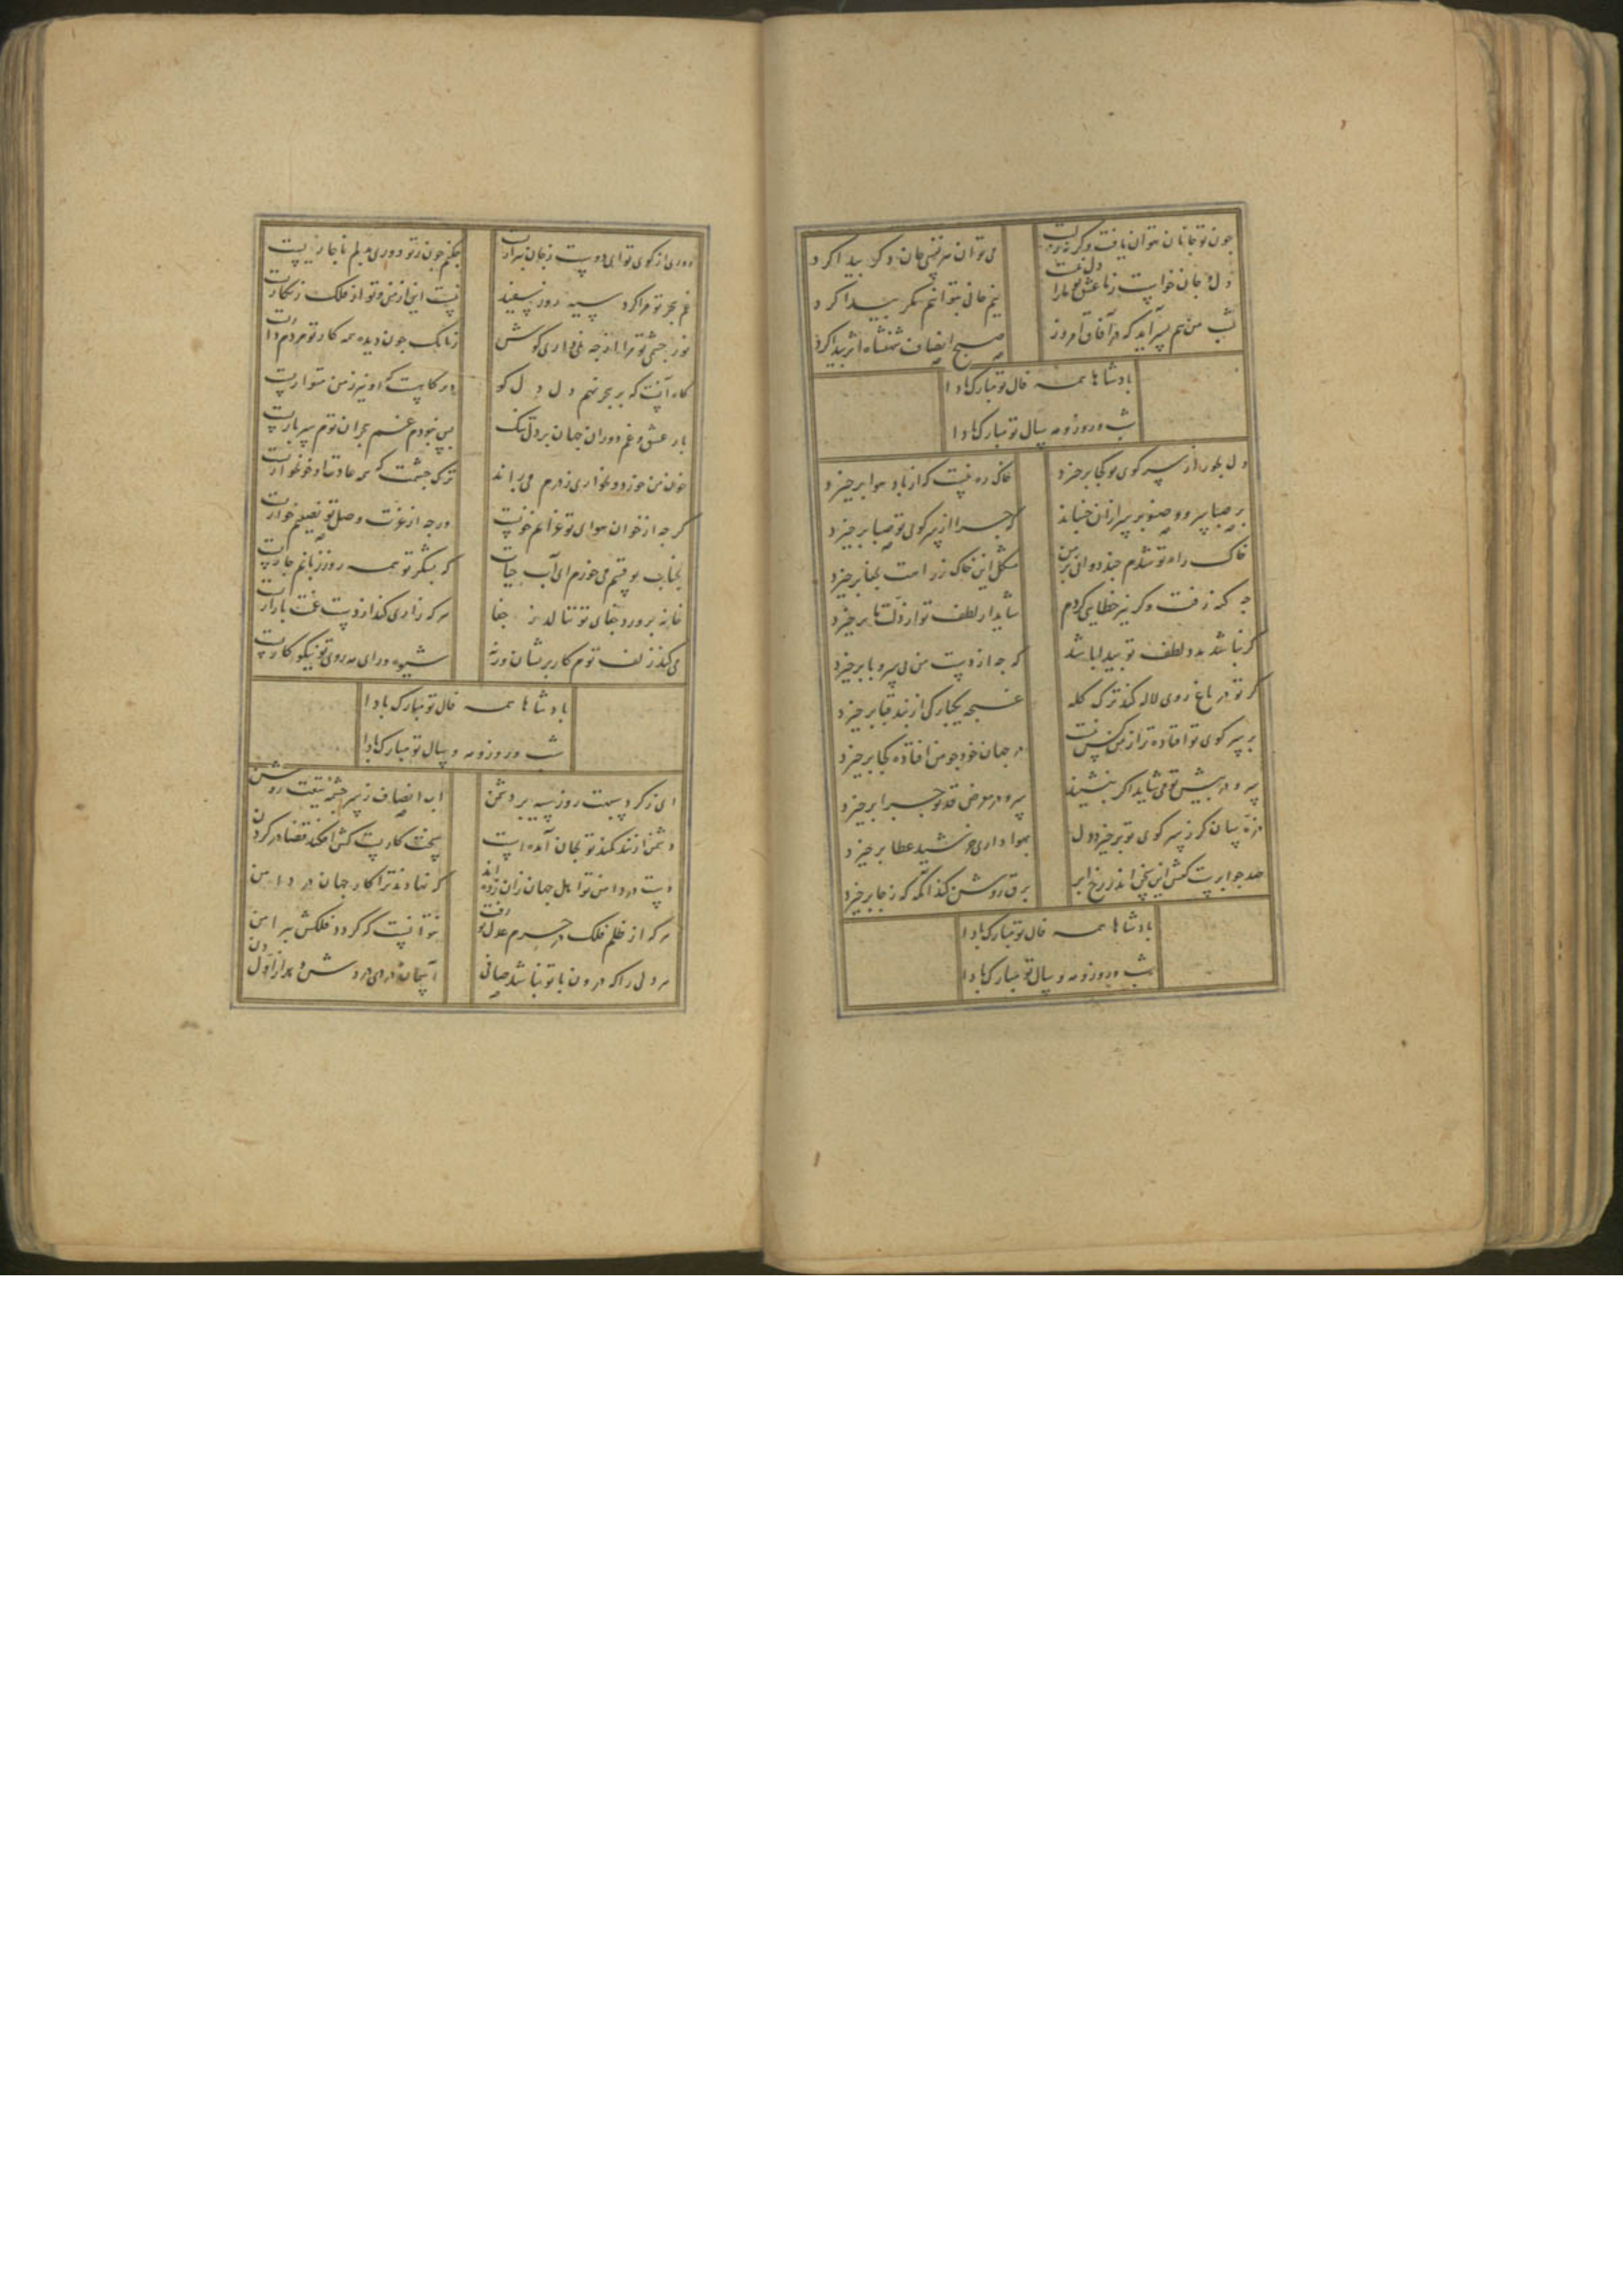 چون تو جانان نتوان یافت وگر نه
می توان هر نفسی جان دگر پیدا کرد
دل و جان خواست ز ما عشق تو ما را دل نیست
نیم جانی بتوانیم مگر پیدا کرد
شب من هم بسر آید که در آفاق امروز
صبح انصاف شهنشاه اثر پیدا کرد
بادشاها همه فال تو مبارک بادا
شب و روز و مه و سال تو مبارک بادا
دل بجور از سر کوی تو کجا برخیزد
خاک ره نیست که از باد هوا برخیزد
بر صبا سرو و صنوبر سر ازان جنباند
که چرا از سر کوی تو صبا برخیزد
خاک راه تو شدم چند دوانی بر من
مشکل این خاک ز راهت بجفا برخیزد
چه گنه رفت وگر نیز خطایی کردم
شاید ار لطف تو از زلت ما برخیزد
گر نباشد مدد لطف تو بیدا باشد
که چه از دست من بی سر و پا برخیزد
گر تو در باغ روی لاله کند ترک کله
غنچه یکبارگی از بند قبا برخیزد
بر سر کوی تو افتاده تر از من کس نیست
در جهان خود چو من افتاده کجا برخیزد
سرو در پیش تو می شاید اگر بنشیند
سرو در معرض قد تو چرا برخیزد
ذره سان کز سر کوی تو برخیزد دل
بهوا داری خورشید عطا برخیزد
صد چو ابرست کمش این سخن اندر رخ ابر
برق روشن کند آنگه که ز جا برخیزد
بادشاها همه فال تو مبارک بادا
شب و روز و مه و سال تو مبارک بادا
دوری از کوی تو ای دوست ز جان بیزاریست
چکنم چون ز تو دوری بدلم ناچاریست
غم هجر تو مرا کرد سیه روز سفید
نیست این از من و تو از فلک زنگاریست
نور چشمی تو مرا از چه نمی داری گوش
زانک چون دیده همه کار تو مردم داریست
گاه آنست که بر هجر نهم دل دل کو
در گاهیست که او نیز ز من متواریست
بار عشق و غم دوران جهان بر دل تنگ
بس نبودم غم هجران تو هم سرباریست
خون من خورد و بخواری ز درم می راند
ترک چشمت که همه عادت او خونخواریست
گرچه از خوان هوای تو غذا غم خوریست
ورچه از عزت وصل تو نصیبم خواریست
بخیالت بو قتم می خورم ای آب حیات
که بشکر تو همه روز زبانم جاریست
خانه پرورد جفای تو ننالد ز جفا
هر که زاری کند از دست غمت بازاریست
می کند زلف توم کار پریشان ورنه
شیوه و رای مه روی تو نیکو کاریست
بادشاها همه فال تو مبارک بادا
شب و روز و مه و سال تو مبارک بادا
ای ز گرد سپهت روز سیه بر دشمن
آب انصاف ز سرچشمه تیغت روشن
دشمن از بند کمند تو بجان آمده است
سخت کاریست کش افکند قضا در گردن
دست در دامن تو اهل جهان زان زده اند
که نهادند ترا کار جهان در دامن
هر که از ظلم فلک در حرم عدل تو رفت
نتوانست که گردد فلکش پیرامن
هر دلی را که درون با تو نباشد صافی
آسمان دردی درد